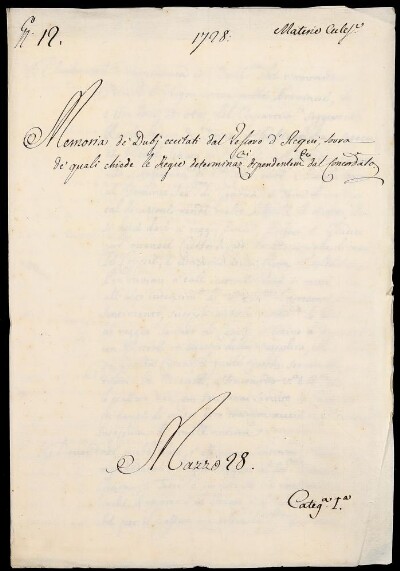 Nº 12.
1728.
Materie Eccles.e
Memoria de' Dubj eccitati dal Vescovo d'Acqui, sovra
de' quali chiede le Regie determinaz.ni dipendentem.te dal Concordato
Mazzo 28.
Categ.a I.a